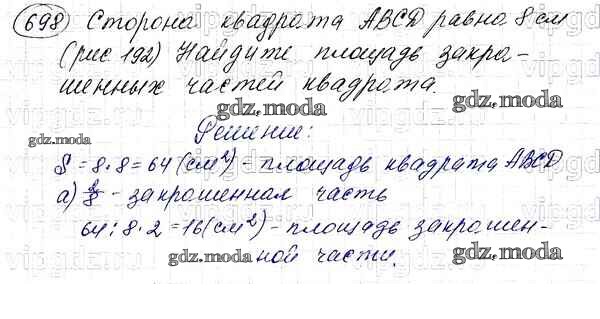 698 Сторона квадрата ABCD равна 8 см
(рис 192) Найдите площадь закра-
шенных частей квадрата.
gdz.moda gdz.moda
Решение:
gdz.moda
S = 8·8 = 64 (см²) - площадь квадрата ABCD
а) 2/8 - закрашенная часть
64 : 8 · 2 = 16 (см²) - площадь закрашен-
gdz.moda ной части. gdz.moda